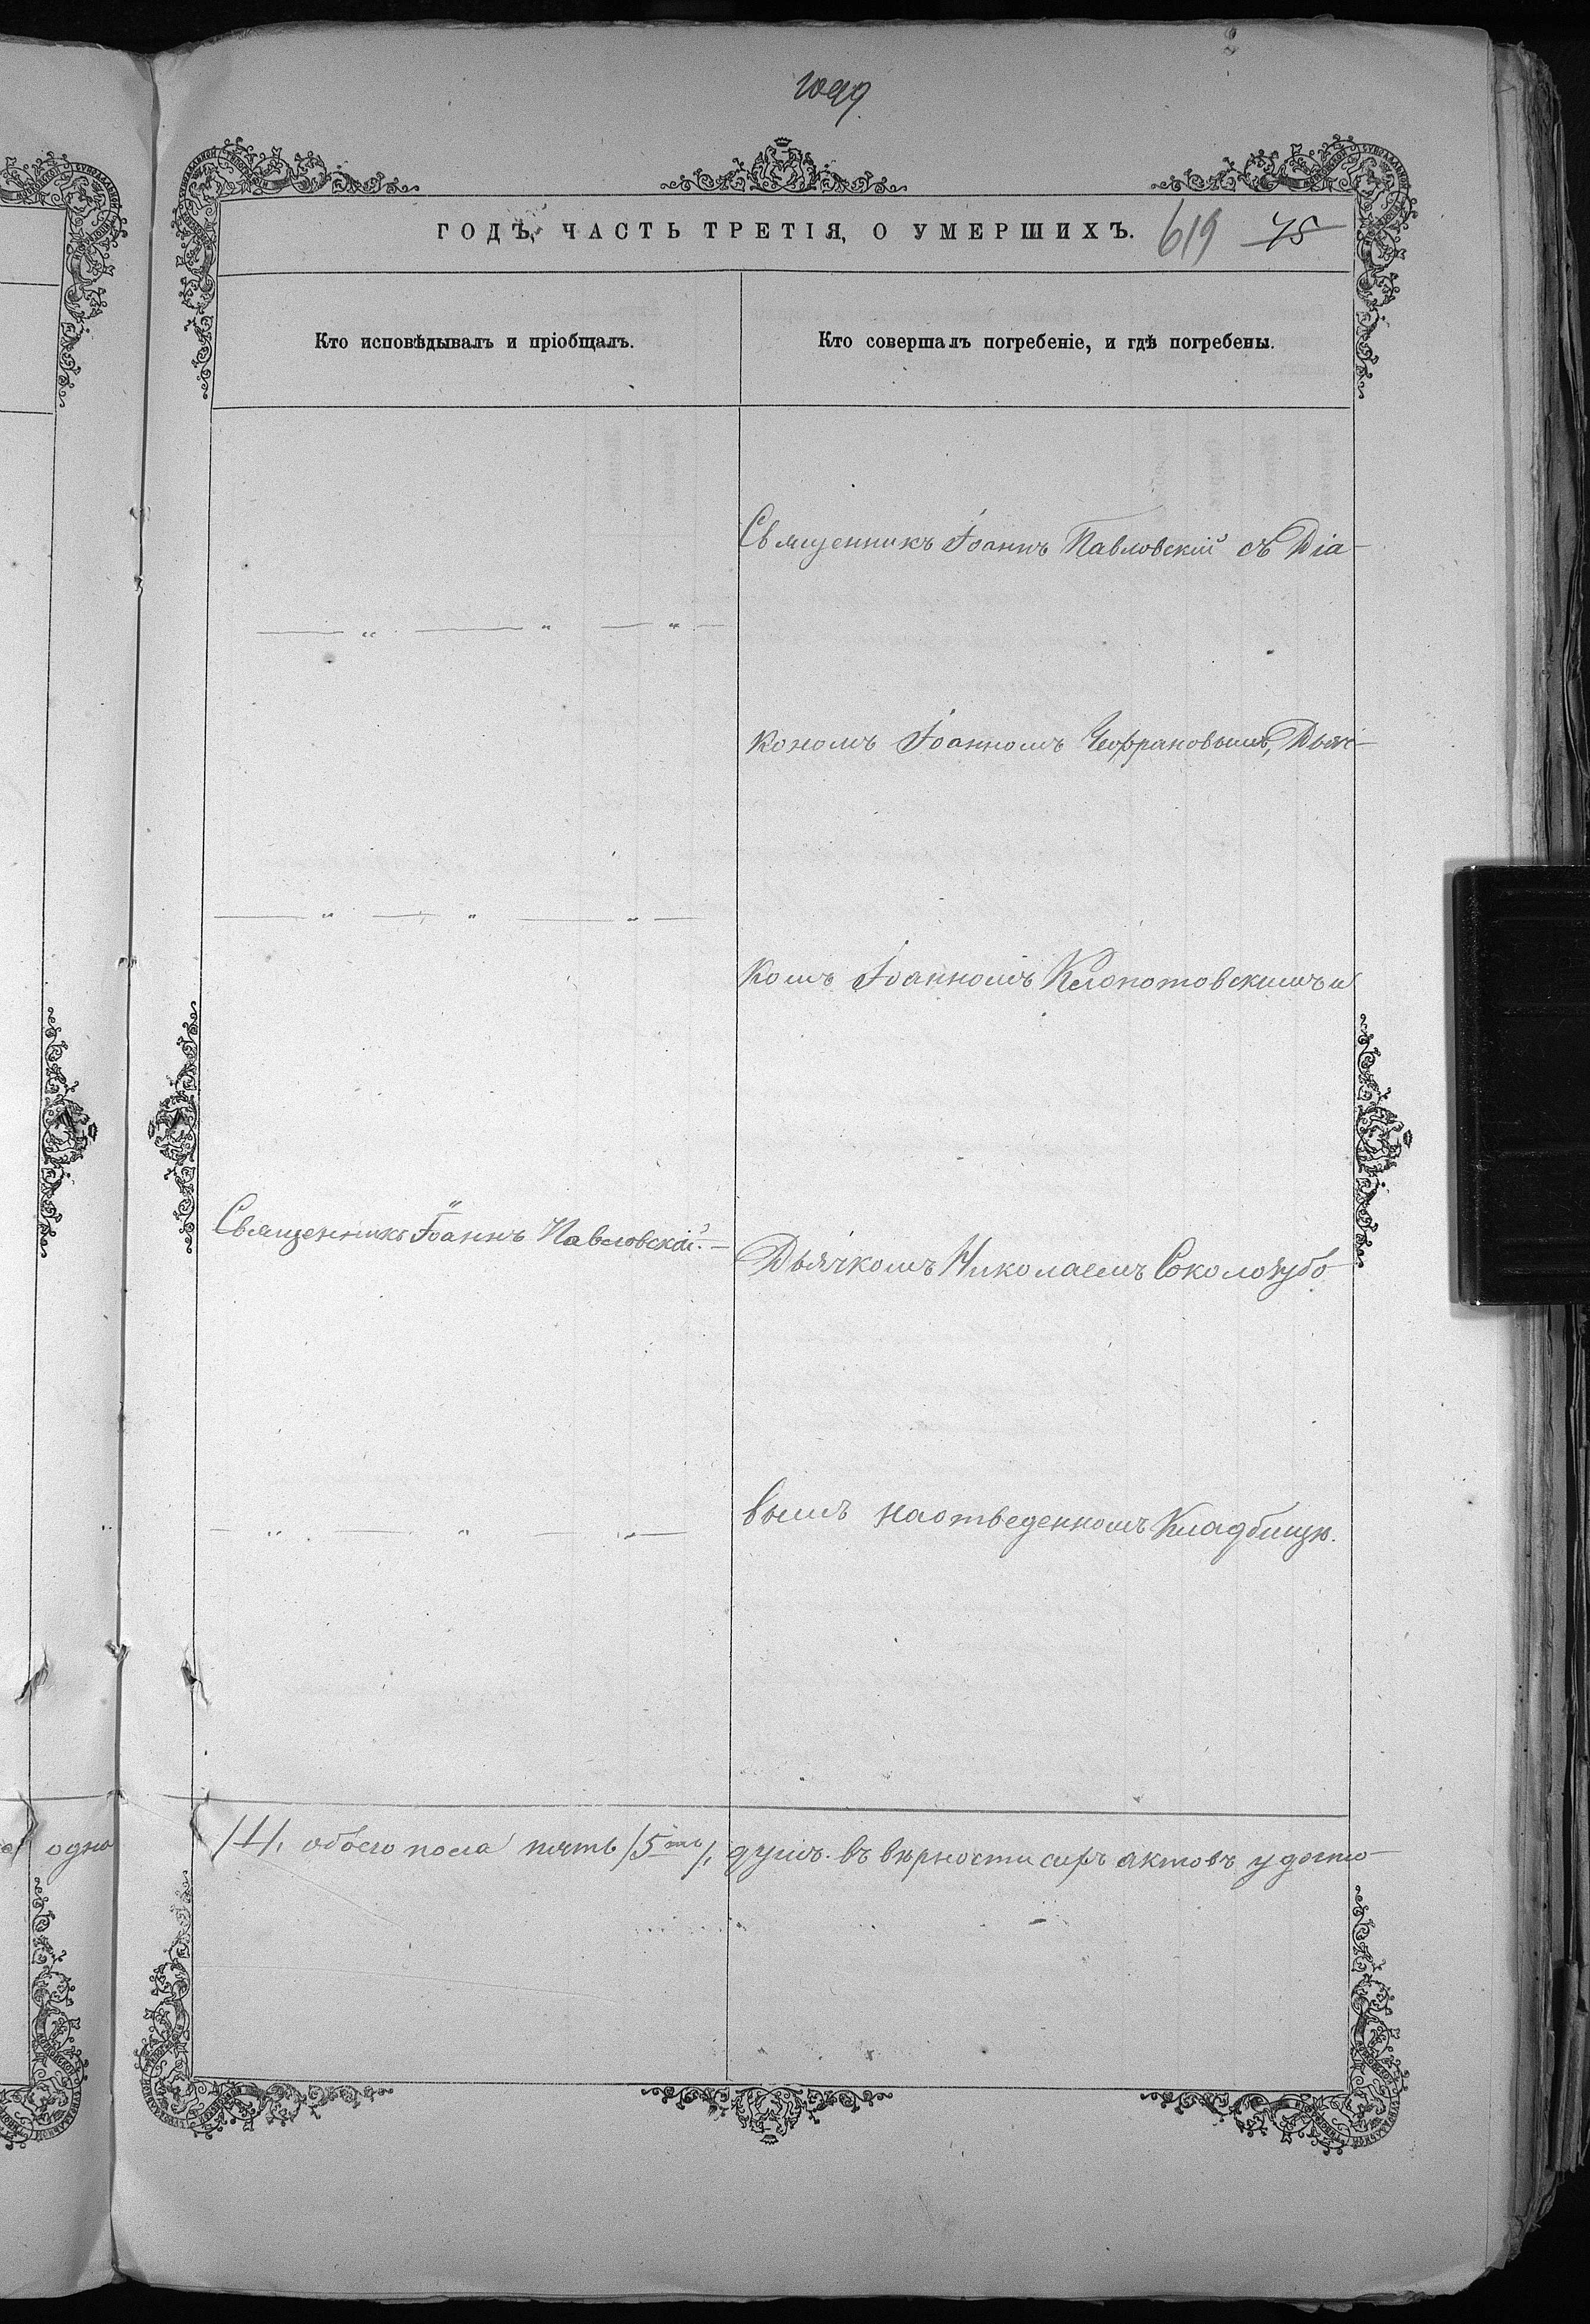 1099
ГОДѢ, ЧАСТЬ ТРЕТІЯ, О УМЕРШИХЪ. 619 75
Кто исповѣдывалъ и пріобщалъ.
Кто совершалъ погребеніе, и гдѣ погребены.
Священникъ Іоаннъ Павловскій съ Діа-
кономъ Іоанномъ Чефрановымъ, Дьяч-
комъ Іоанномъ Клопотовскимъ и
Священникъ Іоаннъ Павловскій.
Дьячкомъ Николаемъ Соколозубо
вымъ на отведенномъ Кладбищѣ.
одно
/1/, обоего пола пять /5ть/, душъ. въ вѣрности сихъ актовъ удосто-